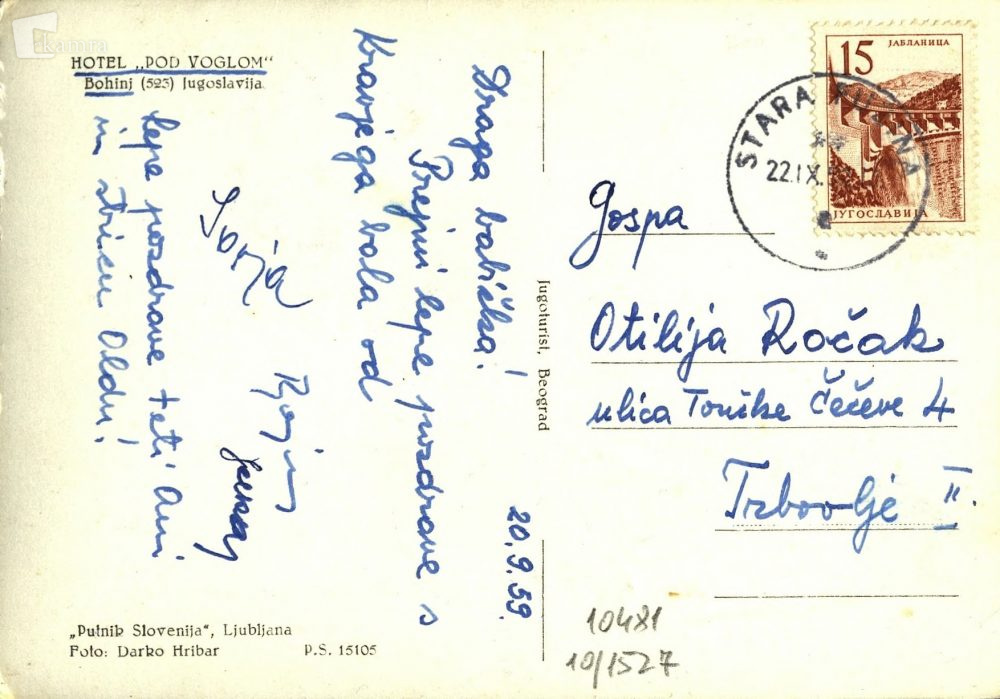 kamra
HOTEL „POD VOGLOM“
Bohinj (523) Jugoslavija
20.9.59.
Draga babička!
Prejmi lepe pozdrave s
Kravjega bala od
Sonja
lepe pozdrave teti Ani
in stricu Oldu!
„Putnik Slovenija“, Ljubljana
Foto: Darko Hribar P.S. 15105
Jugoturist, Beograd
15 ЈАБЛАНИЦА
ЈУГОСЛАВИЈА
STARA FUŽINA
22.IX.
Gospa
Otilija Ročak
ulica Tončke Čečeve 4
Trbovlje II.
10481
10/1527